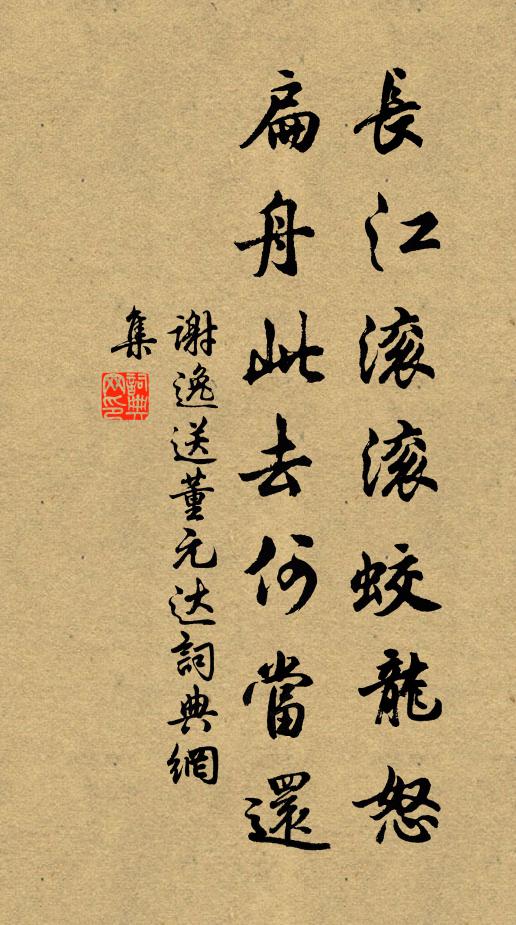 長江滚滚蛟龍怒
扁舟此去何當還
謝逸送董元达詞典網
集
詞典網印